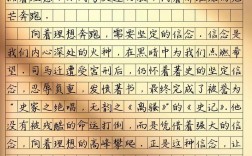 芒奔跑。
向着理想奔跑，需要坚定的信念，信念是
我们内心深处的火种，在黑暗中为我们点燃希
望。司马迁遭受宫刑后，仍怀着著史的坚定信
念，忍辱负重，发愤著书，最终完成了被誉为
“史家之绝唱，无韵之《离骚》”的《史记》。他
没有被残酷的命运打倒，而是凭借着强大的信
念，向着理想的高峰攀爬，正是这种信念，让